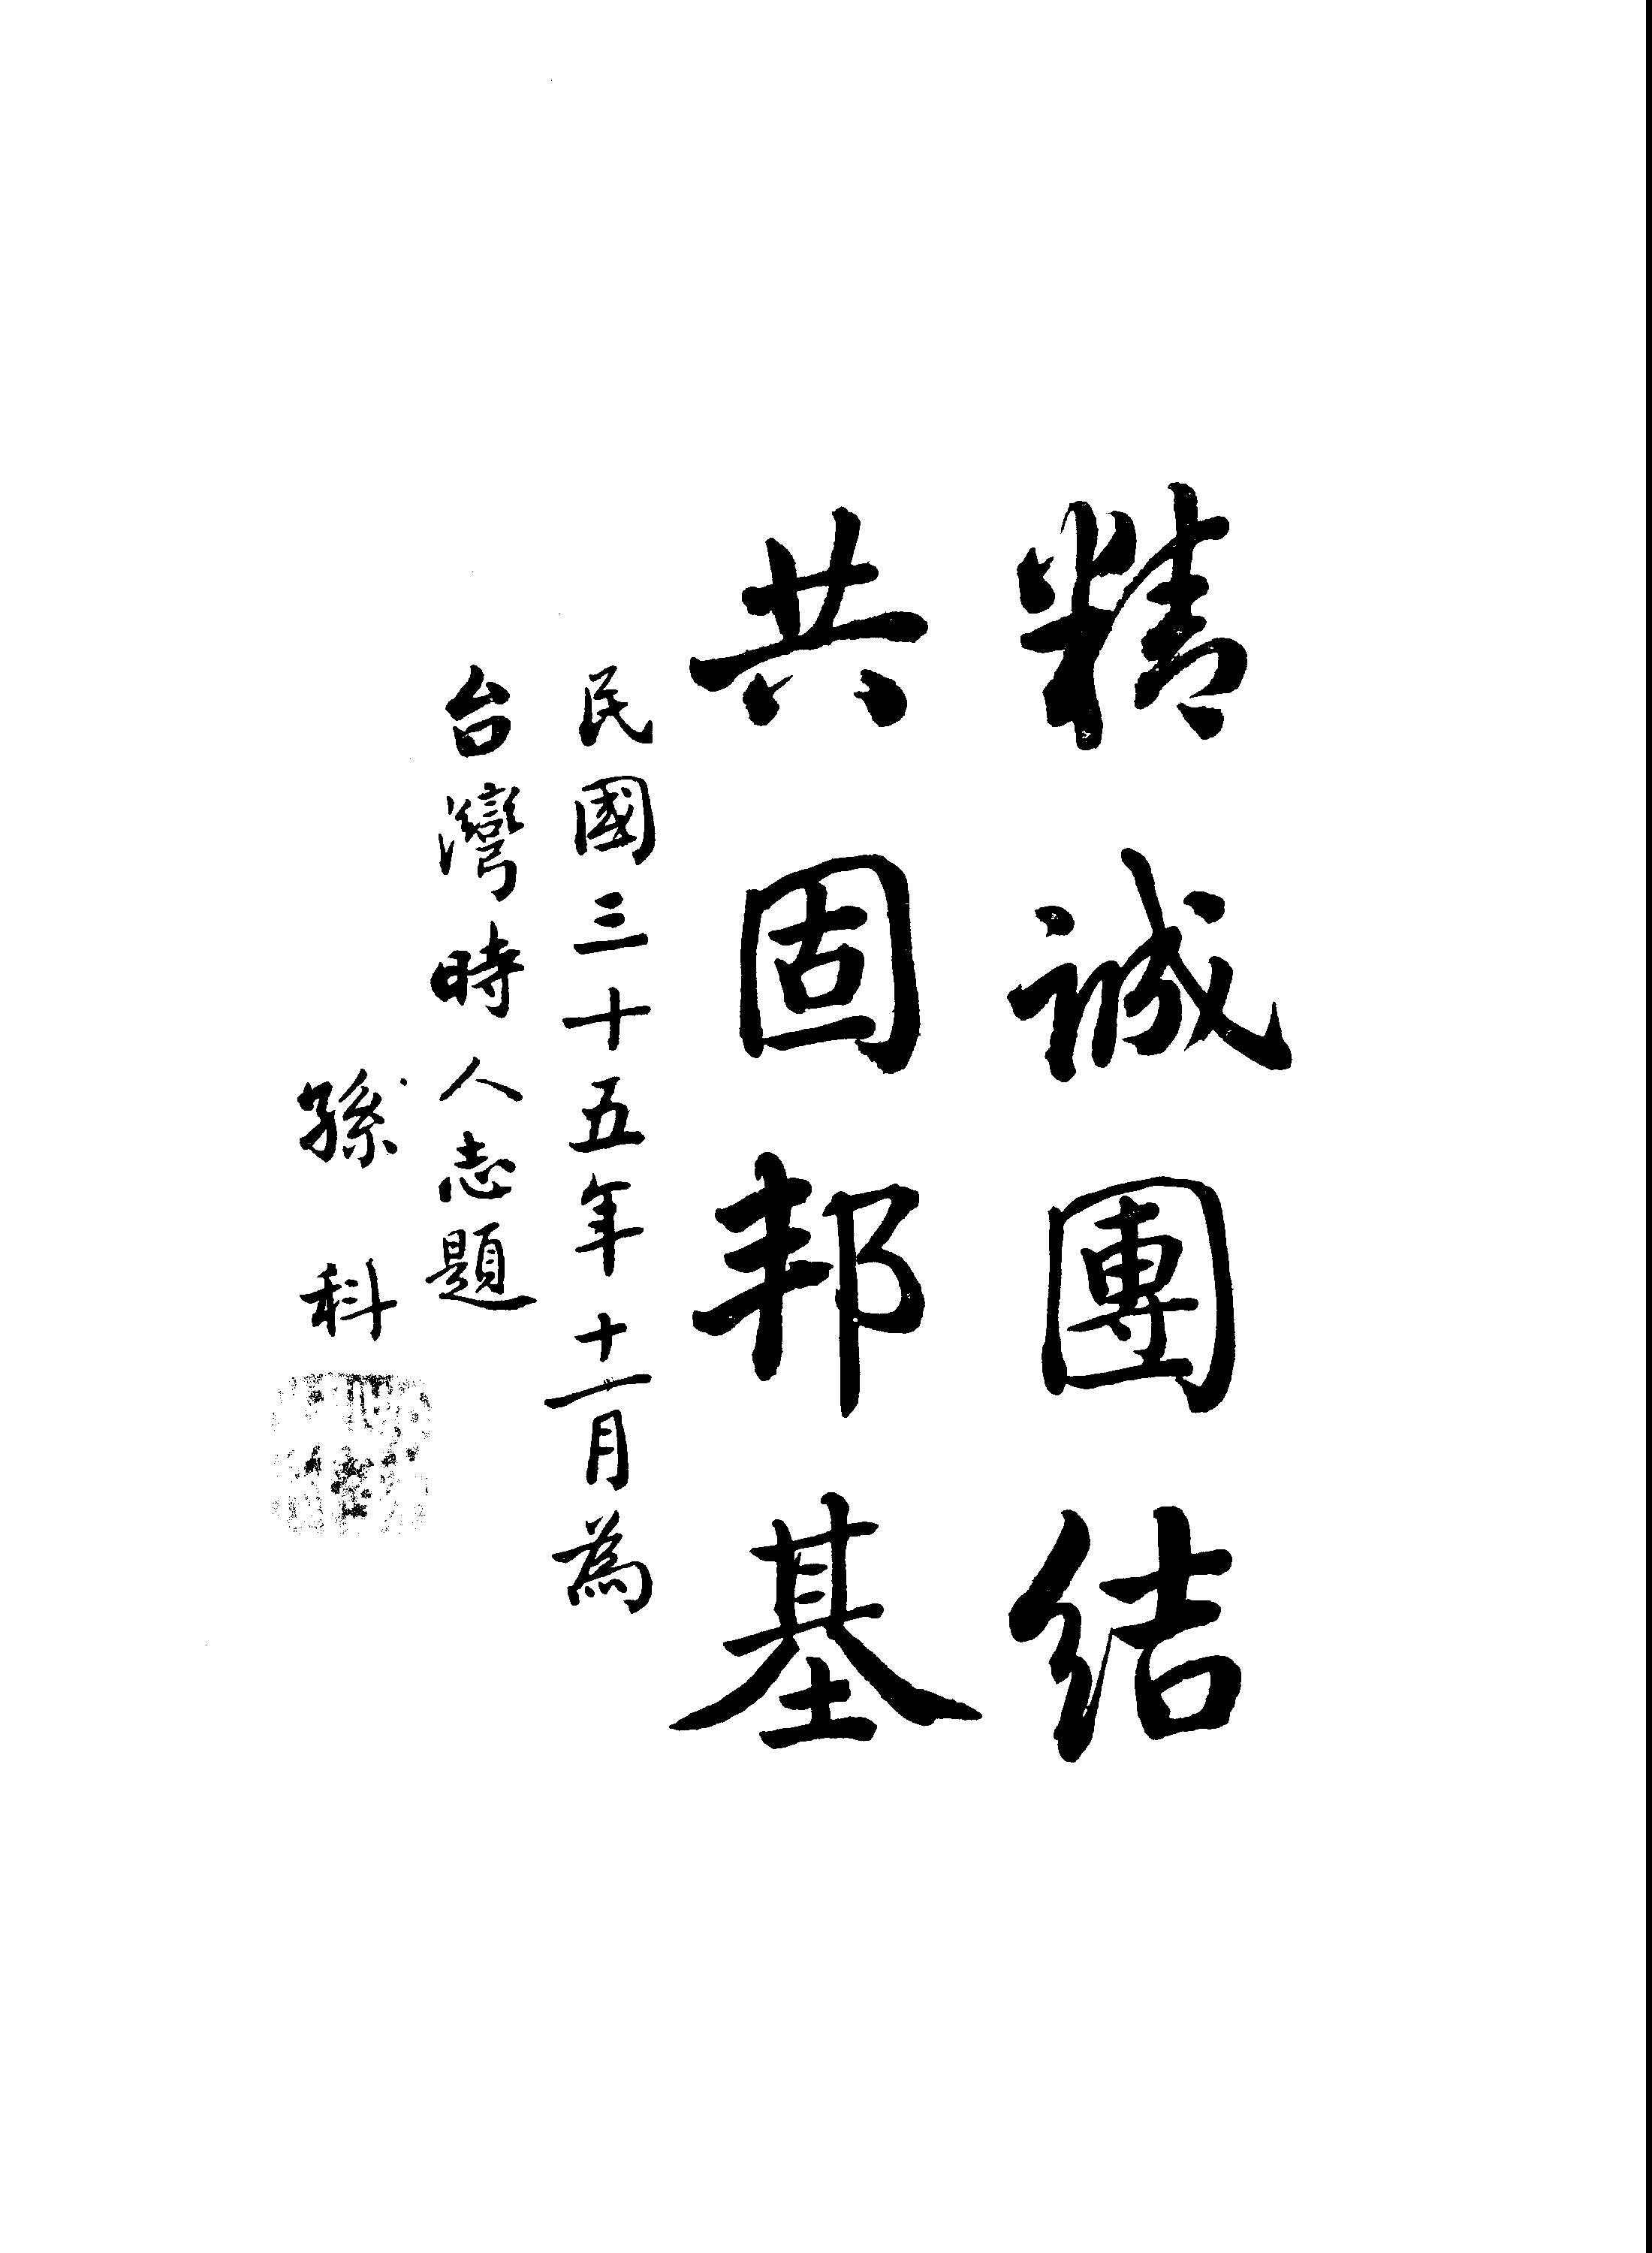 精誠團結
共固邦基
民國三十五年十一月為
台灣時人志題
孫科